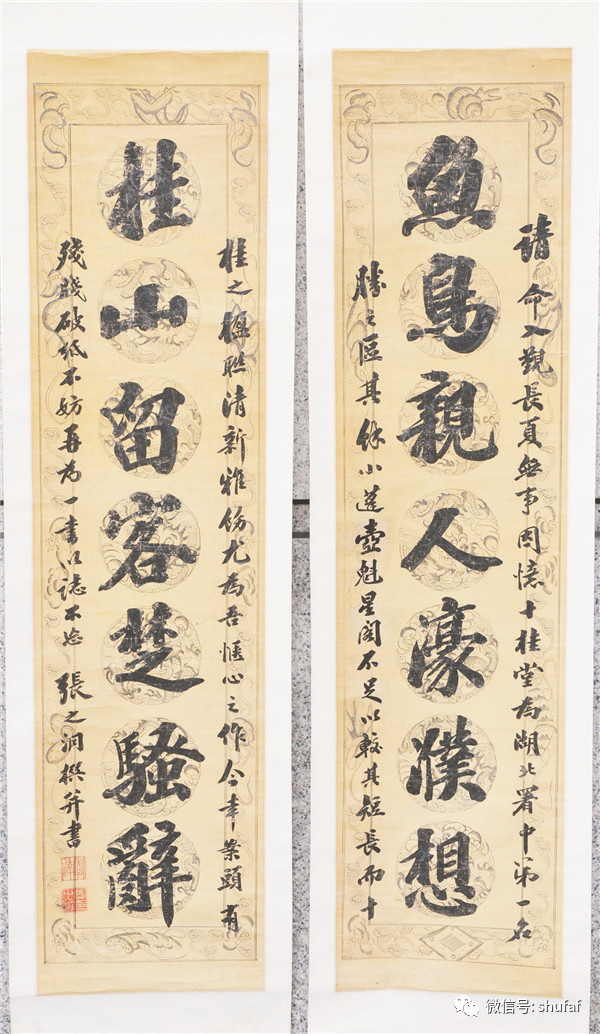 請命入覲長夏無事因憶十桂堂為湖北署中第一名
魚鳥親人濠濮想
勝之區其餘小蓬壺魁星閣不足以較其短長而十
桂之楹聯清新雅飭尤為吾愜心之作今年案頭有
桂山留客楚騷辭
殘牋破紙不妨再為一書以誌不忘 張之洞撰并書
微信号: shufaf